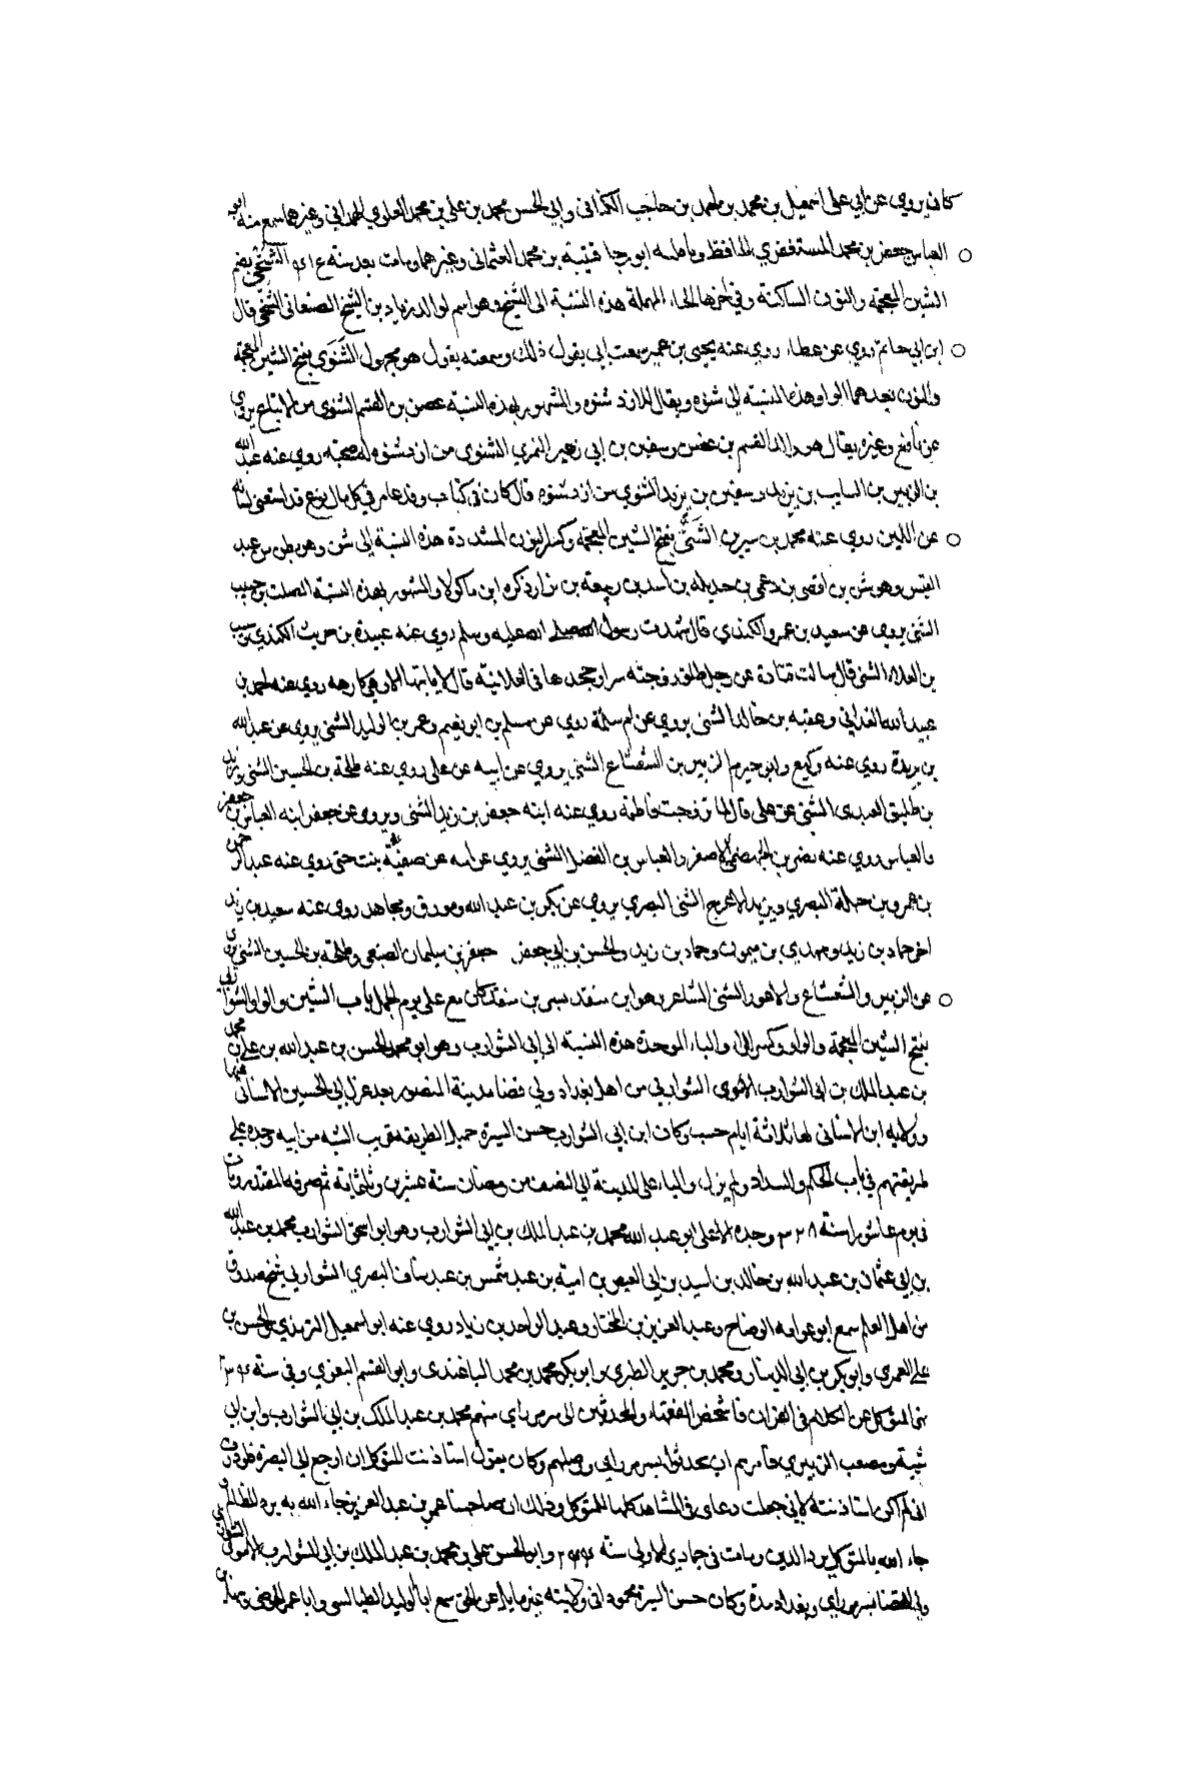 كان يروي عن ابي علي اسمعيل بن محمد بن احمد بن حاجب الكشاني وابي الحسن محمد بن علي بن محمد العلوي الهمداني وغيرهما سمع منه ابو
العباس جعفر بن محمد المستغفري الحافظ وابو رجا قتيبة بن محمد العثماني وغيرهما ومات بعد سنة الشنخي بضم
الشين المعجمة والنون الساكنة وفي اخرها الحاء المهملة هذه النسبة الى الشنخ وهو اسم لوالد زياد بن الشنخ الصنعاني الشنخي قال
ابن ابي حاتم روي عن عطاء روي عنه يحيى بن عمير سمعت ابي يقول ذلك وسمعته يقول هو مجهول الشنوي بفتح الشين المعجمة
والنون بعدهما الواو هذه النسبة الى شنوه ويقال للازد شنوه والمشهور بهذه النسبة بن القسم الشنوي من الاتباع يروي
عن نافع وغيره يقال هو والد القسم بن غصن وسفين بن ابي زهير النمري الشنوي من ازد شنوه له صحبة روي عنه عبد الله
بن الزبير بن السايب بن يزيد وسفين بن يزيد الشنوي من ازد شنوه قال كان في كتاب وفد عامر في كل مال
عن اللبن روي عنه محمد بن سيرين الشني بفتح الشين المعجمة وكسر النون المشددة هذه النسبة الى شن وهو بطن من عبد
القيس وهو شن بن افصى بن دعمي بن جديله بن اسد بن ربيعة بن نزار ذكره ابن ماكولا والمشهور بهذه النسبة الصلت بن حبيب
الشني يروي عن سعيد بن عمرو الكندي قال شهدت رسول الله صلى الله عليه وسلم روي عنه عبيدة بن حريث الكندي
بن العلاء الشني قال سالت قتادة عن رجل طلق زوجته سرا وجحدها في العلانية قال لا ياتيها الا وهي كارهه روي عنه احمد بن
عبيد الله الغداني وعقبه بن خالد الشني يروي عن ام سلمة روي عن مسلم بن ابرهيم وعمر بن الوليد الشني يروي عن عبد الله
بن بريدة روي عنه وكيع وابو خيرم الزبير بن الشعشاع الشني يروي عن ابيه عن علي روي عنه طلحة بن الحسين الشني وزيد
بن طليق العبدي الشني عن علي قال لما تزوجت فاطمه روي عنه ابنه جعفر بن زيد الشني ويروي عن جعفر ابنه العباس بن جعفر
والعباس روي عنه نصر بن الجهضمي الاصغر والعباس بن الفضل الشني يروي عن امه عن صفية بنت حيي روي عنه عبد الرحمن
بن عمرو بن جبلة البصري ويزيد الاعرج الشني البصري يروي عن بكر بن عبد الله ومورق ومجاهد روي عنه سعيد بن زيد
اخو حماد بن زيد ومهدي بن ميمون وحماد بن زيد والحسن بن ابي جعفر جعفر بن سليمان الضبعي وطلحة بن الحسين الشني يروي
عن الزبير والشعشاع والاعور الشني الشاعر هو ابن منقد يسمى بن منقد كان مع علي يوم الجمل باب الشين والواو الشواربي
بفتح الشين المعجمة والواو وكسر الراء والباء الموحدة هذه النسبة الى ابي الشوارب وهو ابو محمد الحسن بن عبد الله بن علي بن محمد
بن عبد الملك بن ابي الشوارب الاموي الشواربي من اهل بغداد ولي قضا مدينة المنصور بعد عزل ابي الحسين الاشناني عنها
وولايه ابن الاشناني لها ثلاثة ايام حسب وكان ابن ابي الشوارب حسن السيرة جميل الطريقه قريب الشبه من ابيه وجده علي
طريقتهم في باب الحكم والسداد ولم يزل واليا على المدينة الى النصف من رمضان سنة عشرين وثلثمائة ثم صرفه المقتدر ومات
في يوم عاشورا سنة ٣٢٨ وجده الاعلى ابو عبد الله محمد بن عبد الملك بن ابي الشوارب وهو ابو اسحق الشوارب محمد بن عبد الله
بن ابي عثمان بن عبد الله بن خالد بن اسيد بن ابي العيص بن امية بن عبد شمس بن عبد مناف البصري الشواربي شيخ صدوق
من اهل العلم سمع ابو عوانه الوضاح وعبد العزيز بن المختار وعبد الواحد بن زياد روي عنه ابو اسمعيل الترمذي والحسن بن
علي العمري وابو بكر بن ابي الدنيا ومحمد بن جرير الطبري وابو بكر محمد بن محمد الباغندي وابو القسم البغوي وفي سنة
نهى المتوكل عن الكلام في القران فاشخص الفقهاء والمحدثين الى سر من راي منهم محمد بن عبد الملك بن ابي الشوارب وابن ابي
شيبة ومصعب الزبيري فامرهم ان يحدثوا بسر من راي ووصلهم وكان يقول استاذنت المتوكل ان ارجع الى البصرة فلوددت
اني لم اكن استاذنته لاني جعلت دعاي في المشاهد كلها للمتوكل وذلك ان صاحبنا عمر بن عبد العزيز جاء الله به يرد المظالم و
جاء الله بالمتوكل يرد الدين ومات في جمادي الاولى سنة ٢٤٤ وابو الحسن علي بن محمد بن عبد الملك بن ابي الشوارب الاموي الشواربي
ولي القضا بسر من راي وبغداد مدة وكان حسن السيرة محمودا في ولايته غير مايل عن الحق سمع ابا الوليد الطيالسي وابا عمر الحوضي